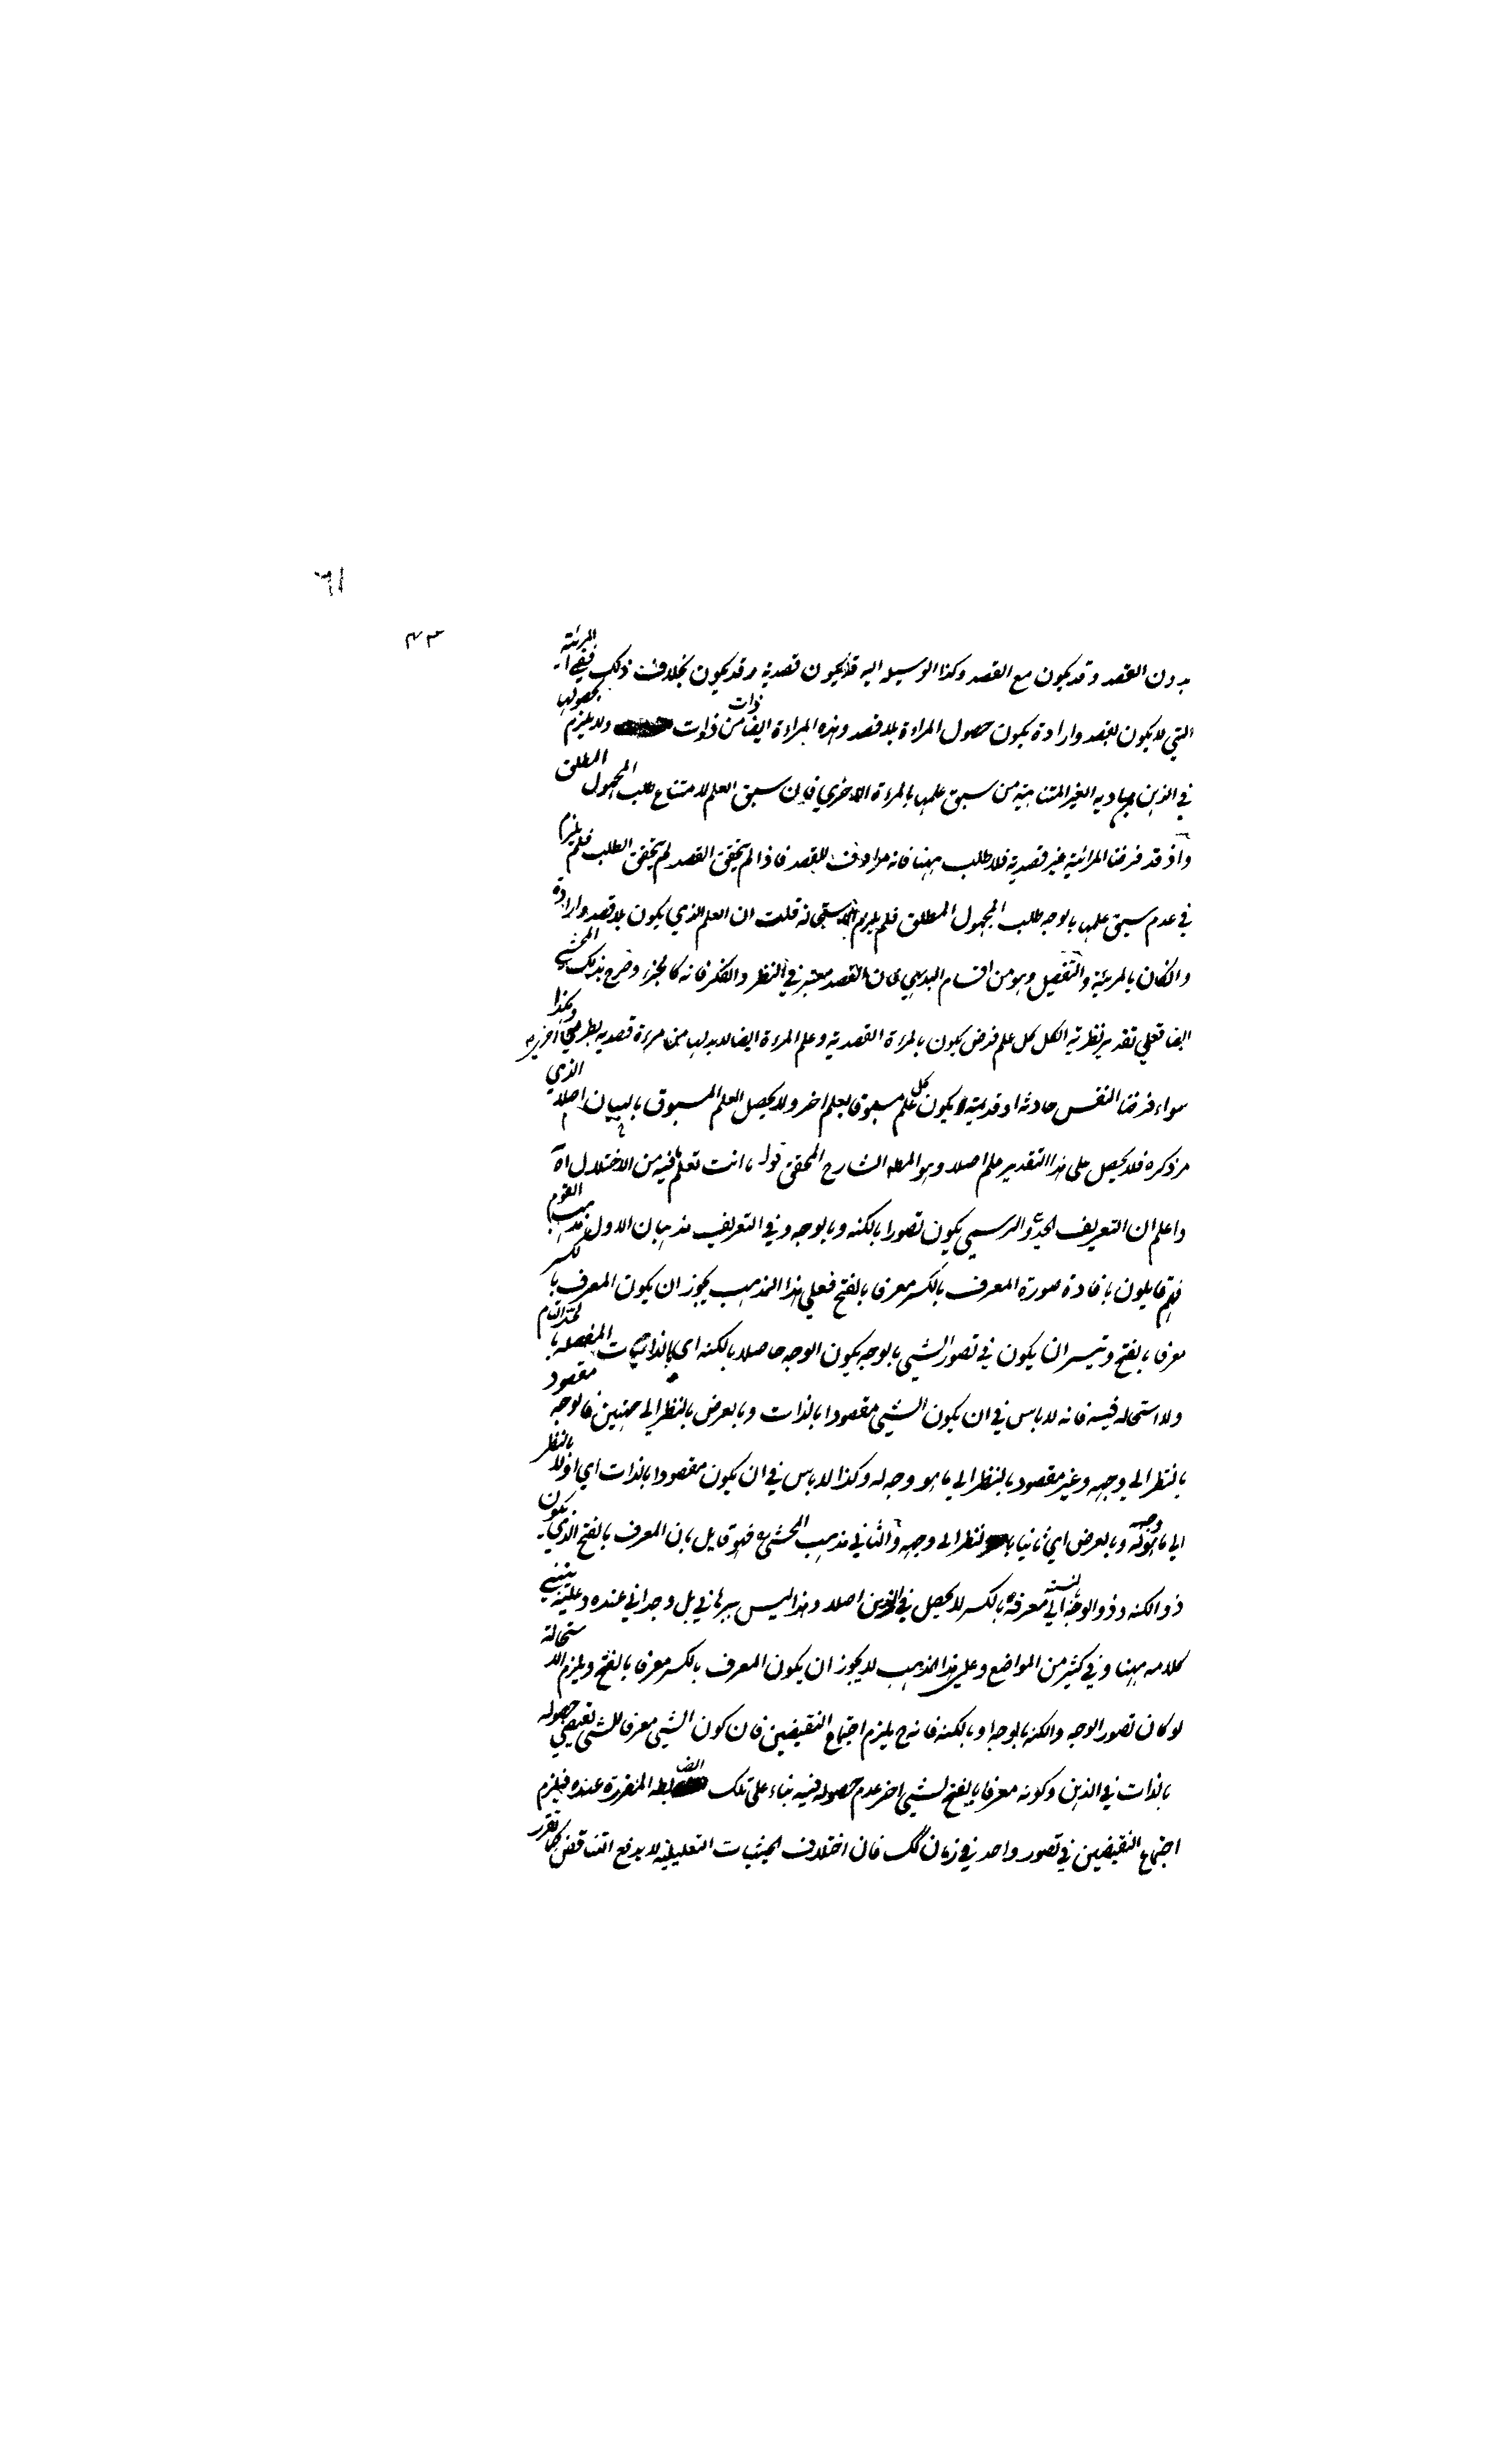 ٦١
٤٣
بدون القصد وقد يكون مع القصد وكذا الوسيلة اليه قد يكون قصدية وقد يكون بخلاف ذلك ففي المرئية
التي لا يكون بقصد وارادة يكون حصول المراءة بلا قصد وهذه المراءة ايضا من ذوات ذات ولا يلزم بحصولها
في الذهن مباديه الغير المتناهية من سبق علمها بالمرءة الاخرى فان سبق العلم لامتناع طلب المجهول المطلق
واذ قد فرضنا المرائية غير قصدية فلا طلب ههنا فانه مرادف للقصد فاذا لم يتحقق القصد لم يتحقق الطلب فلم يلزم
في عدم سبق علمها بالوجه طلب المجهول المطلق فلم يلزم استحالة قلت ان العلم الذي يكون بلا قصد وارادة
وان كان بالمرئية والتفصيل وهو من اقسام البديهي لان القصد معتبر في النظر والفكر فانه كالجزء وصرح بذلك المحشي
ايضا فعلى تقدير نظرية الكل كل علم فرض يكون بالمرءة القصدية وعلم المرءة ايضا لابد لها من مرءة قصدية اخرى وهكذا
سواء فرضنا النفس حادثة او قديمة لا يكون كل علم مسبوقا بعلم اخر ولا يحصل العلم المسبوق بالبيان الذي
مر ذكره فلا يحصل على هذا التقدير علم اصلا وهو المط الشارح المحقق قوله وانت تعلم ما فيه من الاختلال اه
واعلم ان التعريف الحدي والرسمي يكون تصورا بالكنه وبالوجه وفي التعريف مذهبان الاول مذهب القوم
فهم قايلون بافادة صورة المعرف بالكسر معرفا بالفتح فعلى هذا المذهب يجوز ان يكون المعرف بالكسر
معرفا بالفتح وتيسر ان يكون في تصور الشيء بالوجه يكون الوجه حاصلا بالكنه اى بالذاتيات المفصلة
ولا استحالة فيه فانه لا باس في ان يكون الشيء مقصودا بالذات وبالعرض بالنظر الى جهتين فالوجه مقصود
بالنظر الى وجهه وغير مقصود بالنظر الى ما هو وجه له وكذا لا باس في ان يكون مقصودا بالذات اي اولا بالنظر
الى ما هو وجه له وبالعرض اي ثانيا بالنظر الى وجهه والثاني مذهب المحشي فهو قايل بان المعرف بالفتح الذي يكون
ذو الكنه وذو الوجه بالنسبة الى معرفه بالكسر لا يحصل في الذهن اصلا وهذا ليس ببرهاني بل وجداني عنده وعليه يبتني
كلامه ههنا وفي كثير من المواضع وعلى هذا المذهب لا يجوز ان يكون المعرف بالكسر معرفا بالفتح ويلزم الاستحالة
لو كان تصور الوجه والكنه بالوجه او بالكنه فانه ح يلزم اجتماع النقيضين فان كون الشيء معرفا للشيء يقتضي حصوله
بالذات في الذهن وكونه معرفا بالفتح لشيء اخر عدم حصوله فيه بناء على تلك الضابطة المقررة عنده فيلزم
اجتماع النقيضين في تصور واحد في زمان كك فان اختلاف الحيثيات التعليلية لا يدفع التناقض كما تقرر